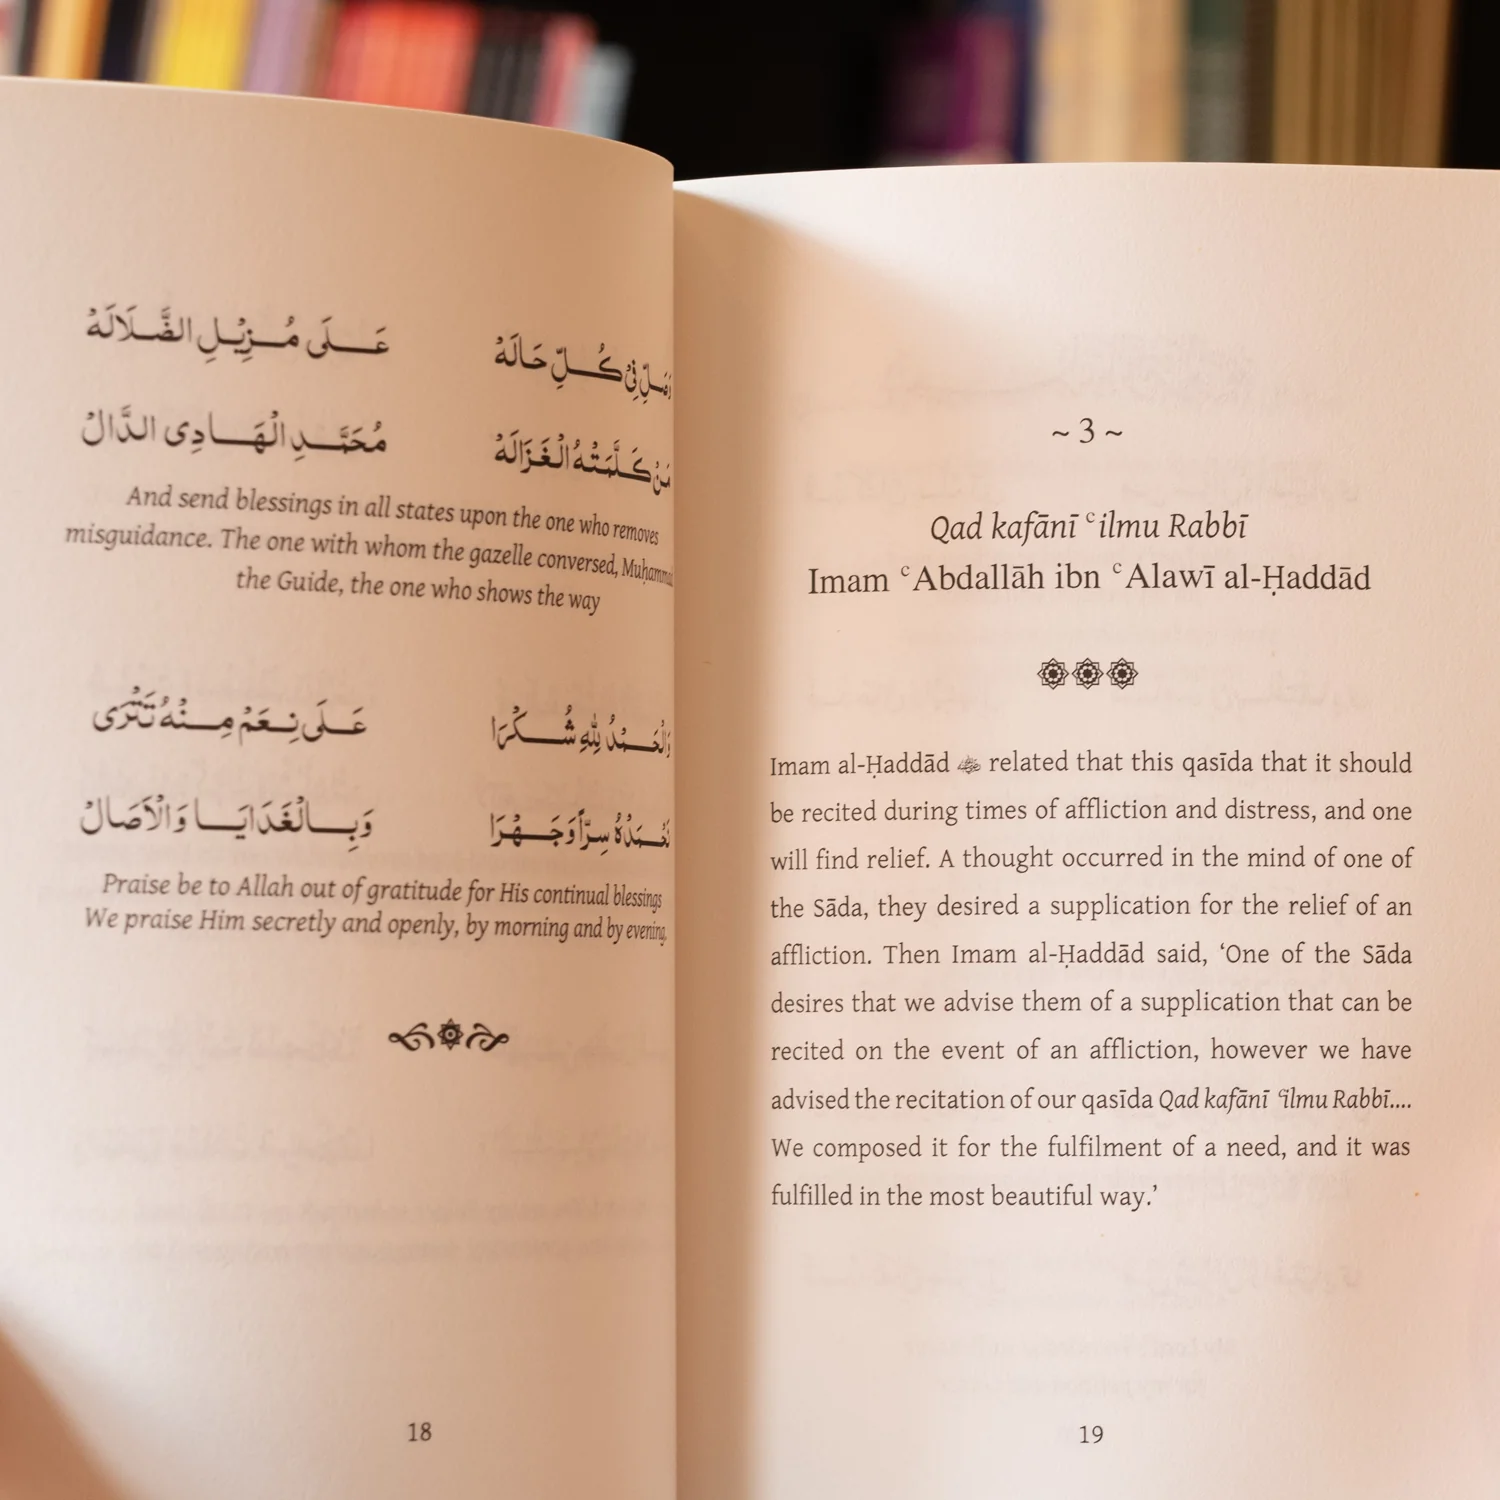 وَصَلِّ فِيْ كُلِّ حَالَهْ عَلَى مُزِيْلِ الضَّلَالَهْ
مَنْ كَلَّمَتْهُ الْغَزَالَهْ مُحَمَّدِ الْهَادِى الدَّالْ
And send blessings in all states upon the one who removes
misguidance. The one with whom the gazelle conversed,
the Guide, the one who shows the way
وَالْحَمْدُ لِلّٰهِ شُكْرَا عَلَى نِعَمْ مِنْهُ تَتْرَى
نَحْمَدُهُ سِرًّا وَجَهْرَا وَبِالْغَدَايَا وَالْاَصَالْ
Praise be to Allah out of gratitude for His continual blessings
We praise Him secretly and openly, by morning and by evening.
18
~ 3 ~
Qad kafānī ʿilmu Rabbī
Imam ʿAbdallāh ibn ʿAlawī al-Ḥaddād
Imam al-Ḥaddād related that this qasīda that it should
be recited during times of affliction and distress, and one
will find relief. A thought occurred in the mind of one of
the Sāda, they desired a supplication for the relief of an
affliction. Then Imam al-Ḥaddād said, ‘One of the Sāda
desires that we advise them of a supplication that can be
recited on the event of an affliction, however we have
advised the recitation of our qasīda Qad kafānī ʿilmu Rabbī....
We composed it for the fulfilment of a need, and it was
fulfilled in the most beautiful way.’
19